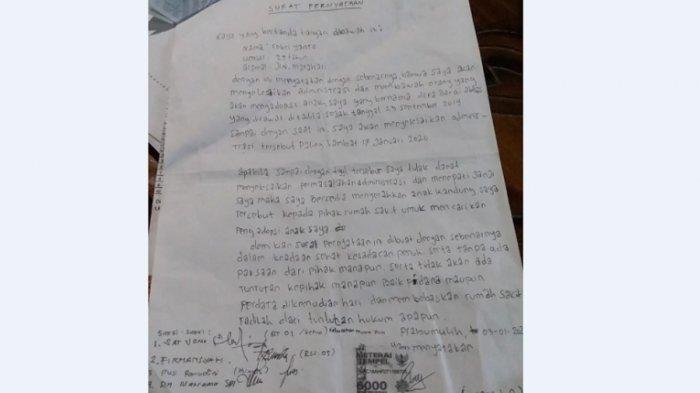 SURAT PERNYATAAN
Saya yang bertanda tangan dibawah ini:
Nama :
umur : 29
alamat : Jln.
dengan ini menyatakan dengan sebenarnya, bahwa saya akan
menyelesaikan administrasi dan membawah orang yang
akan mengadopsi anak saya yang bernama
yang dirawat di fadila sejak tanggal 23 september 2019
sampai dengan saat ini. saya akan menyelesaikan adminis-
trasi tersebut paling lambat 17 Januari 2020
apabila sampai dengan tgl tersebut saya tidak dapat
menyelesaikan permasalahan administrasi dan menepati Janji
saya maka saya Bersedia menyerahkan anak kandung saya
tersebut kepada pihak rumah sakit untuk mencarikan
pengadopsi anak saya
demikian surat pernyataan ini dibuat dengan sebenarnya
dalam keadaan sehat kesadaran penuh serta tanpa ada
paksaan dari pihak manapun. serta tidak akan ada
tuntutan kepihak manapun Baik pidana maupun
perdata dikemudian hari dan membebaskan rumah sakit
fadilah dari tuntutan hukum apapun.
Saksi-saksi:
Prabumulih, 03-01-20
1.
(RT 01
Yang menyatakan
2. FIRMANSYAH.
METERAI
TEMPEL
6000